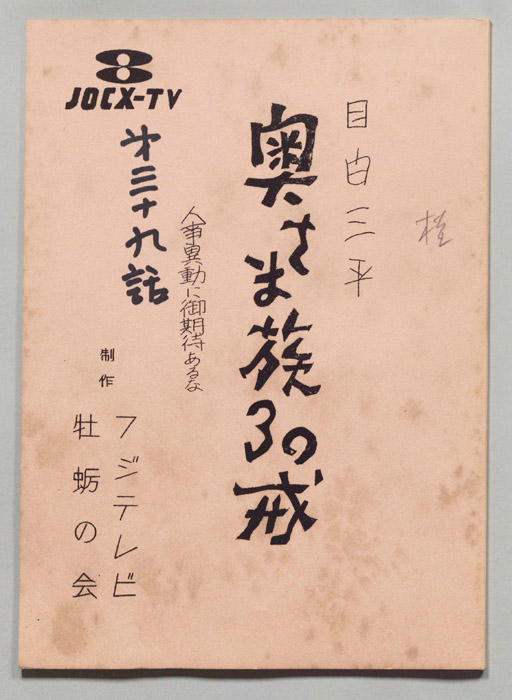 桂
目白三平
奥さま族30の戒
人事異動に御期待あるな
JOCX-TV
才三十九話
制作
フジテレビ
牡蛎の会